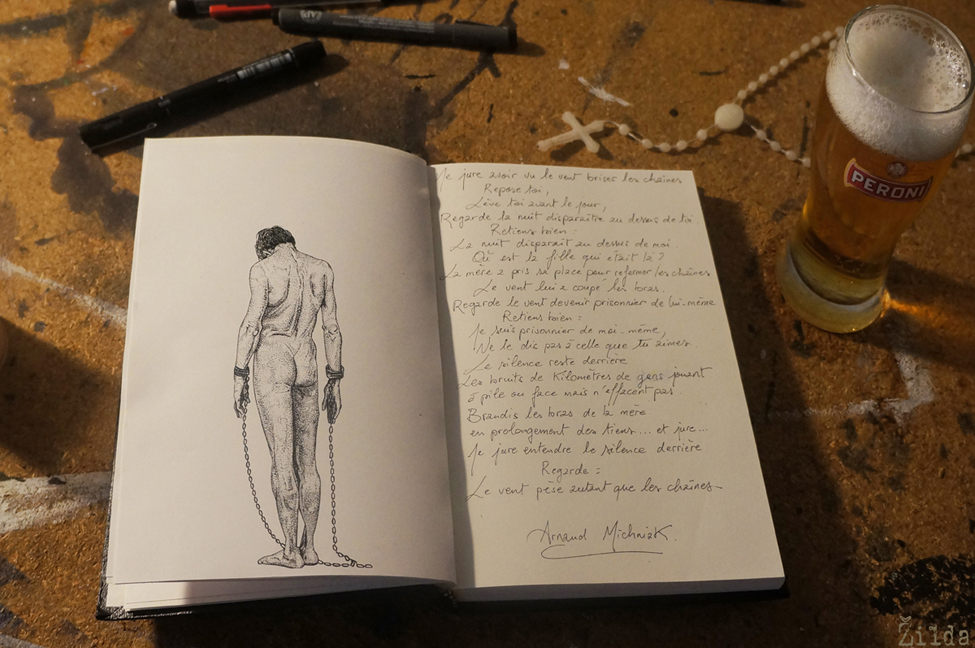 Je jure avoir vu le vent briser les chaînes
Repose toi,
Lève toi avant le jour,
Regarde la nuit disparaître au dessus de toi
Retiens bien :
La nuit disparaît au dessus de moi.
Où est la fille qui était là ?
La mère a pris sa place pour refermer les chaînes
Le vent lui a coupé les bras.
Regarde le vent devenir prisonnier de lui-même
Retiens bien :
Je suis prisonnier de moi-même,
Ne le dis pas à celle que tu aimes.
Le silence reste derrière
Les bruits de Kilomètres de gens jouent
à pile ou face mais n'effacent pas
Brandis les bras de la mère
en prolongement des tiens... et jure...
Je jure entendre le silence derrière
Regarde :
Le vent pèse autant que les chaînes
Arnaud Michniak.
PERONI
Žilda